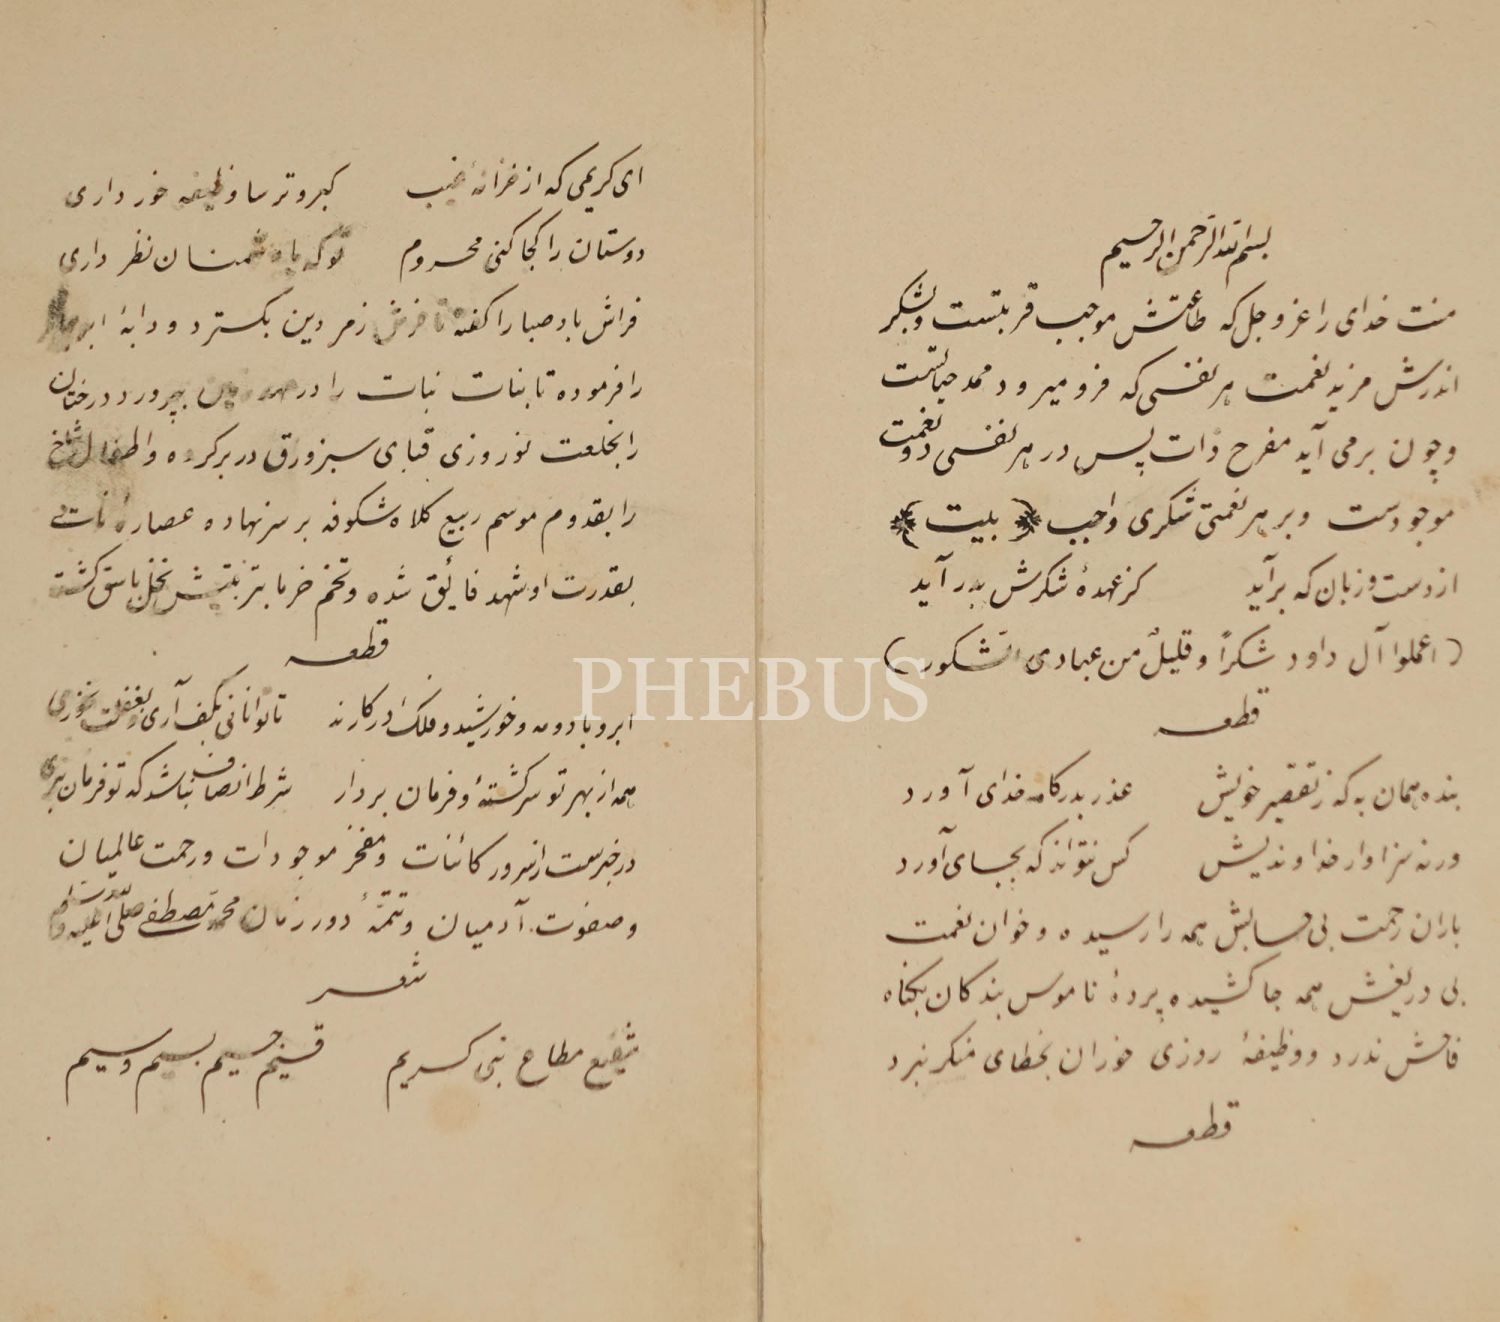 بسم الله الرحمن الرحیم
منت خدای را عز وجل که طاعتش موجب قربتست و بشکر
اندرش مزید نعمت هر نفسی که فرو میرود ممد حیاتست
و چون برمی آید مفرح ذات پس در هر نفسی دو نعمت
موجودست و بر هر نعمتی شکری واجب ﴿ بیت ﴾
از دست و زبان که برآید کز عهدهٔ شکرش بدر آید
( اعملوا آل داود شکراً و قلیلٌ من عبادی الشکور )
قطعه
بنده همان به که ز تقصیر خویش عذر بدرگاه خدای آورد
ورنه سزاوار خداوندیش کس نتواند که بجای آورد
باران رحمت بی حسابش همه را رسیده و خوان نعمت
بی دریغش همه جا کشیده پردهٔ ناموس بندگان بگناه
فاحش ندرد و وظیفهٔ روزی خوران بخطای منکر نبرد
قطعه
ای کریمی که از خزانهٔ غیب گبر و ترسا وظیفه خور داری
دوستان را کجا کنی محروم تو که با دشمنان نظر داری
فراش باد صبا را گفته تا فرش زمردین بگسترد و دایهٔ ابر
را فرموده تا بنات نبات را در مهد زمین بپرورد درختان
را بخلعت نوروزی قبای سبز ورق در بر کرده و اطفال شاخ
را بقدوم موسم ربیع کلاه شکوفه بر سر نهاده عصارهٔ
بقدرت او شهد فائق شده و تخم خرما بتربیتش نخل باسق گشته
قطعه
ابر و باد و مه و خورشید و فلک در کارند تا تو نانی بکف آری و بغفلت نخوری
همه از بهر تو سرگشتهٔ و فرمان بردار شرط انصاف نباشد که تو فرمان نبری
در خبرست از سرور کائنات و مفخر موجودات و رحمت عالمیان
و صفوت آدمیان و تتمهٔ دور زمان محمد مصطفی صلی الله علیه وسلم
شعر
شفیع مطاع نبی کریم قسیم جسیم بسیم وسیم
PHEBUS